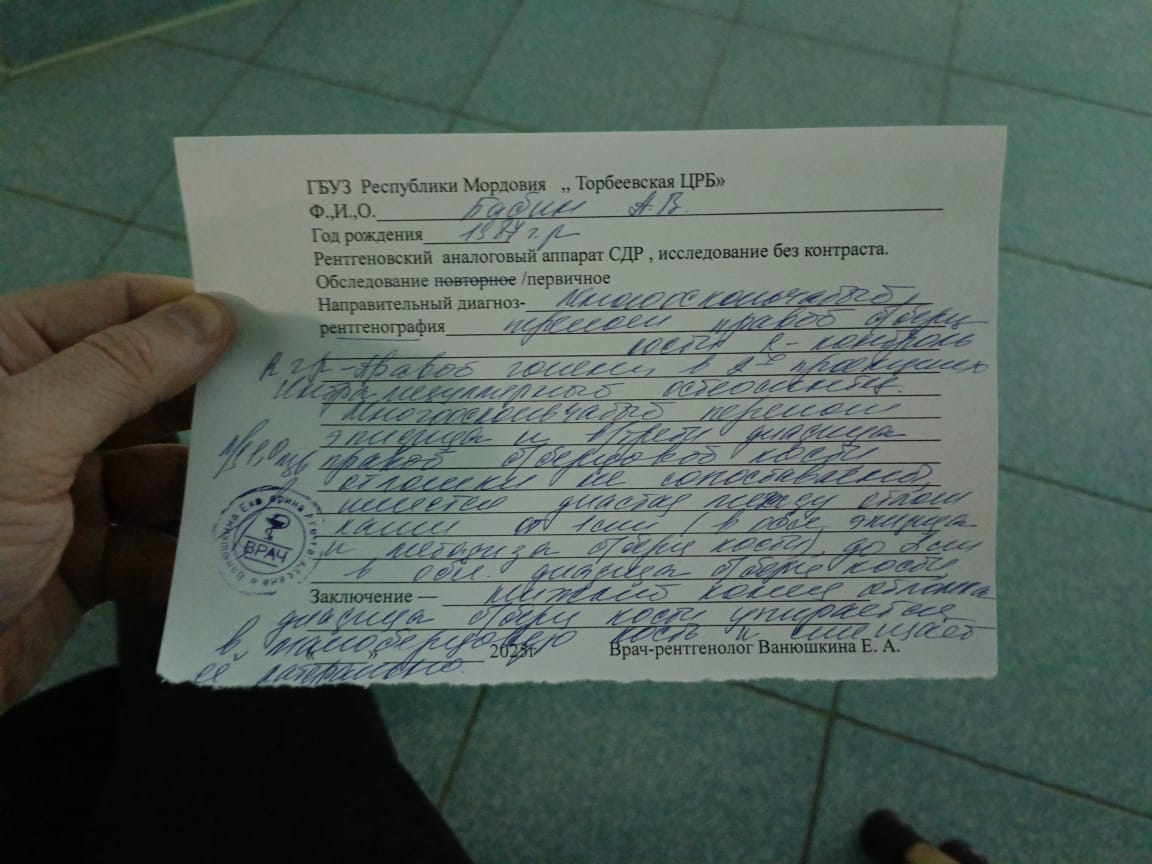 ГБУЗ Республики Мордовия ,, Торбеевская ЦРБ»
Ф.,И.,О. Бабин А.В.
Год рождения 1987 г.р
Рентгеновский аналоговый аппарат СДР , исследование без контраста.
Обследование повторное /первичное
Направительный диагноз- Многооскольчатый
рентгенография перелом правой б/берц
кости R-контроль
R гр-правой голени в 2х проекциях
Интрамедуллярный остеосинтез.
Многооскольчатый перелом
эпифиза и в/трети диафиза
правой б/берцовой кости
отломки не сопоставлены,
имеется диастаз между отлом
ками до 1см (в обл. эпифиза
и метафиза б/берц кости), до 2см
в обл. диафиза б/берц кости
Заключение — нижний конец отломка
диафиза б/берц кости упирается
в малоберцовую кость и смещает
её латерально.
2023г Врач-рентгенолог Ванюшкина Е. А.
ВРАЧ